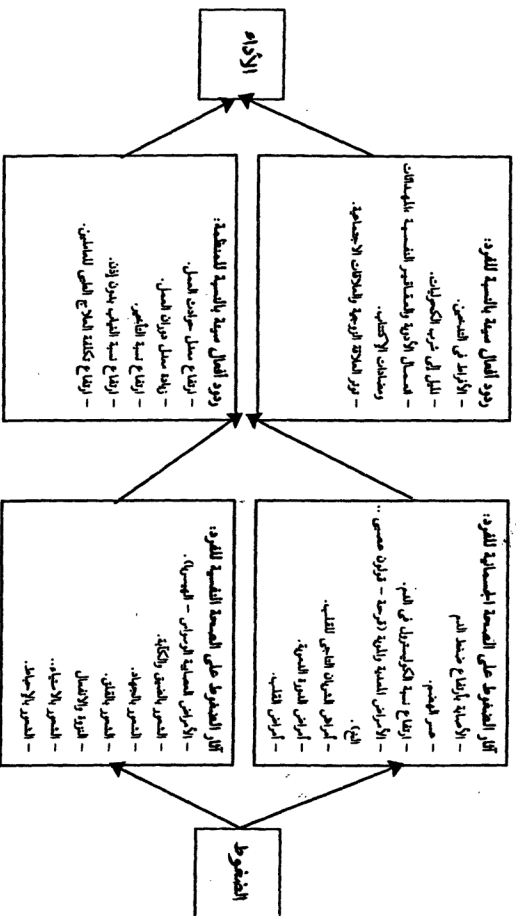 الضغوط
آثار الضغوط على الصحة الجسمانية للفرد:
- الأصابة بأرتفاع ضغط الدم
- عسر الهضم.
- ارتفاع نسبة الكوليسترول فى الدم.
- الأمراض المعدية والمعوية (قرحة - قولون عصبى ..
الخ).
- أمراض الشريان التاجى للقلب.
- أمراض الدورة الدموية.
- أمراض القلب.
آثار الضغوط على الصحة النفسية للفرد:
- الأمراض العصابية (الوسواس - الهيستريا).
- الشعور بالضيق والكآبة.
- الشعور بالاجهاد.
- الشعور بالقلق.
- الثورة والانفعال
- الشعور بالاستياء.
- الشعور بالاحباط.
ردود أفعال سيئة بالنسبة للفرد:
- الأفراط فى التدخين.
- الميل إلى شرب الكحوليات.
- استعمال الأدوية والعقاقير النفسية كالمهدئات
ومضادات الاكتئاب.
- توتر العلاقة الزوجية والعلاقات الاجتماعية.
ردود أفعال سيئة بالنسبة للمنظمة:
- ارتفاع معدل حوادث العمل.
- زيادة معدل دوران العمل.
- ارتفاع نسبة التأخير.
- ارتفاع نسبة الغياب بدون إذن.
- ارتفاع تكلفة العلاج الطبى للعاملين.
الأداء